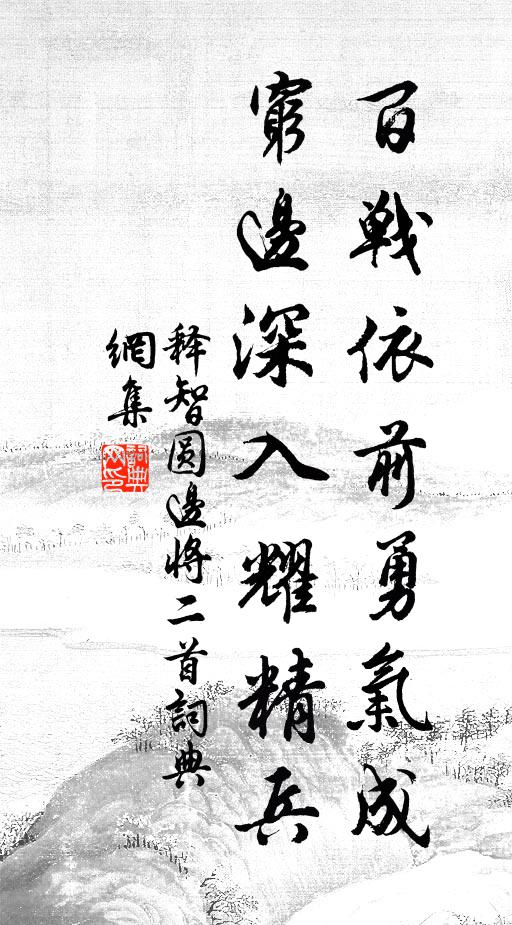 百戰依前勇氣成
窮邊深入耀精兵
释智圆邊將二首詞典
網集
詞典网印